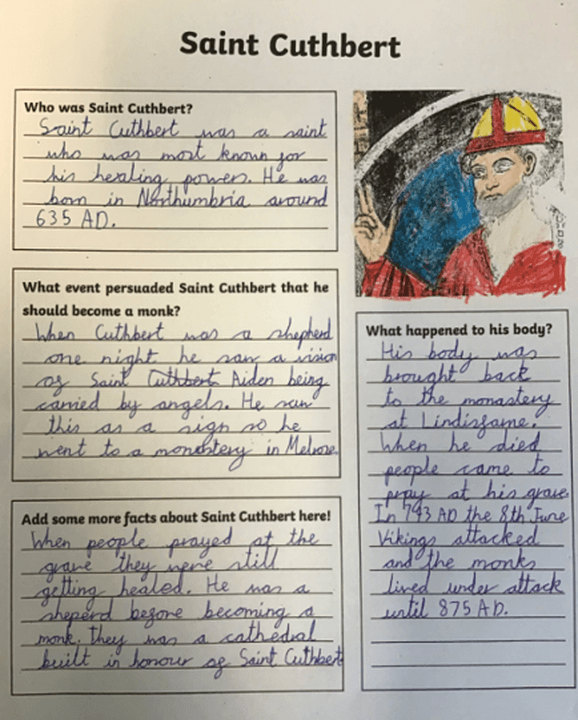 Saint Cuthbert
Who was Saint Cuthbert?
Saint Cuthbert was a saint
who was most known for
his healing powers. He was
born in Northumbria around
635 AD.
What event persuaded Saint Cuthbert that he
should become a monk?
When Cuthbert was a shepherd
one night he saw a vision
of Saint Cuthbert Aiden being
carried by angels. He saw
this as a sign so he
went to a monastery in Melrose.
Add some more facts about Saint Cuthbert here!
When people prayed at the
grave they were still
getting healed. He was a
sheperd before becoming a
monk. they was a cathedral
built in honour of Saint Cuthbert
What happened to his body?
His body was
brought back
to the monastery
at Lindisfarne.
When he died
people came to
pray at his grave.
In 793 AD the 8th June
Vikings attacked
and the monks
lived under attack
until 875 AD.